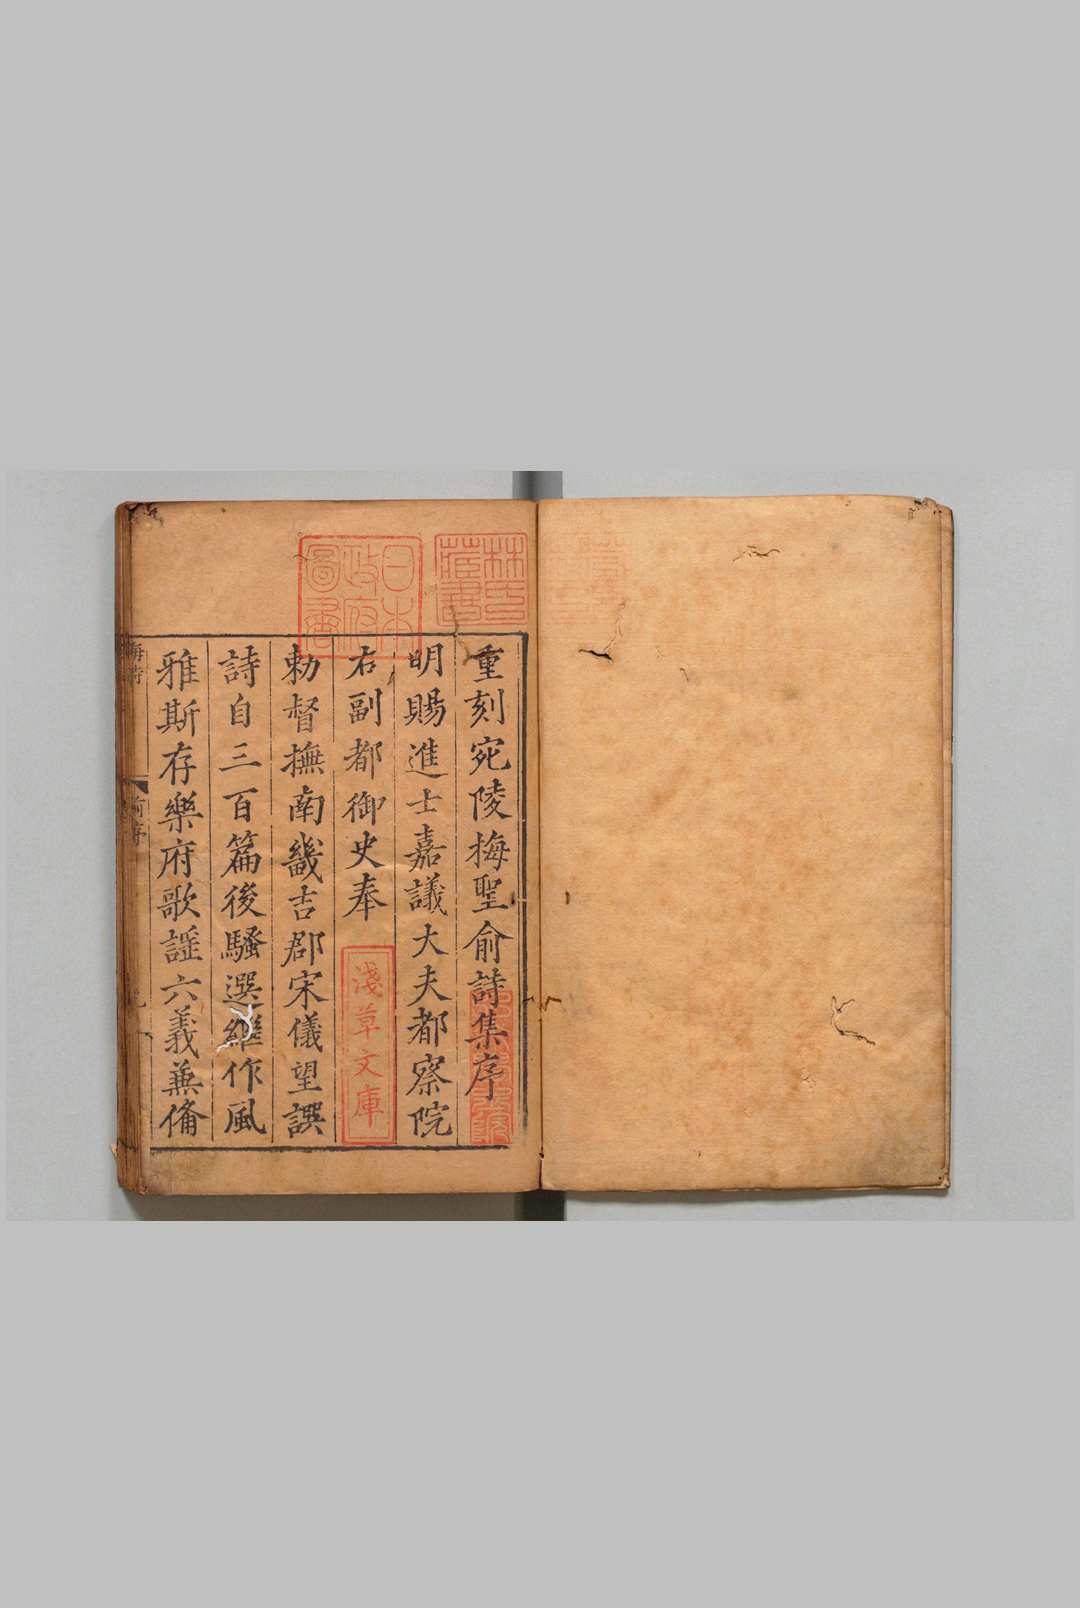 重刻宛陵梅聖俞詩集序
明賜進士嘉議大夫都察院
右副都御史奉
勅督撫南畿吉郡宋儀望譔
詩自三百篇後騷選繼作風
雅斯存樂府歌謡六義兼備
林氏藏書
日本政府圖書
淺草文庫
梅詩
前序